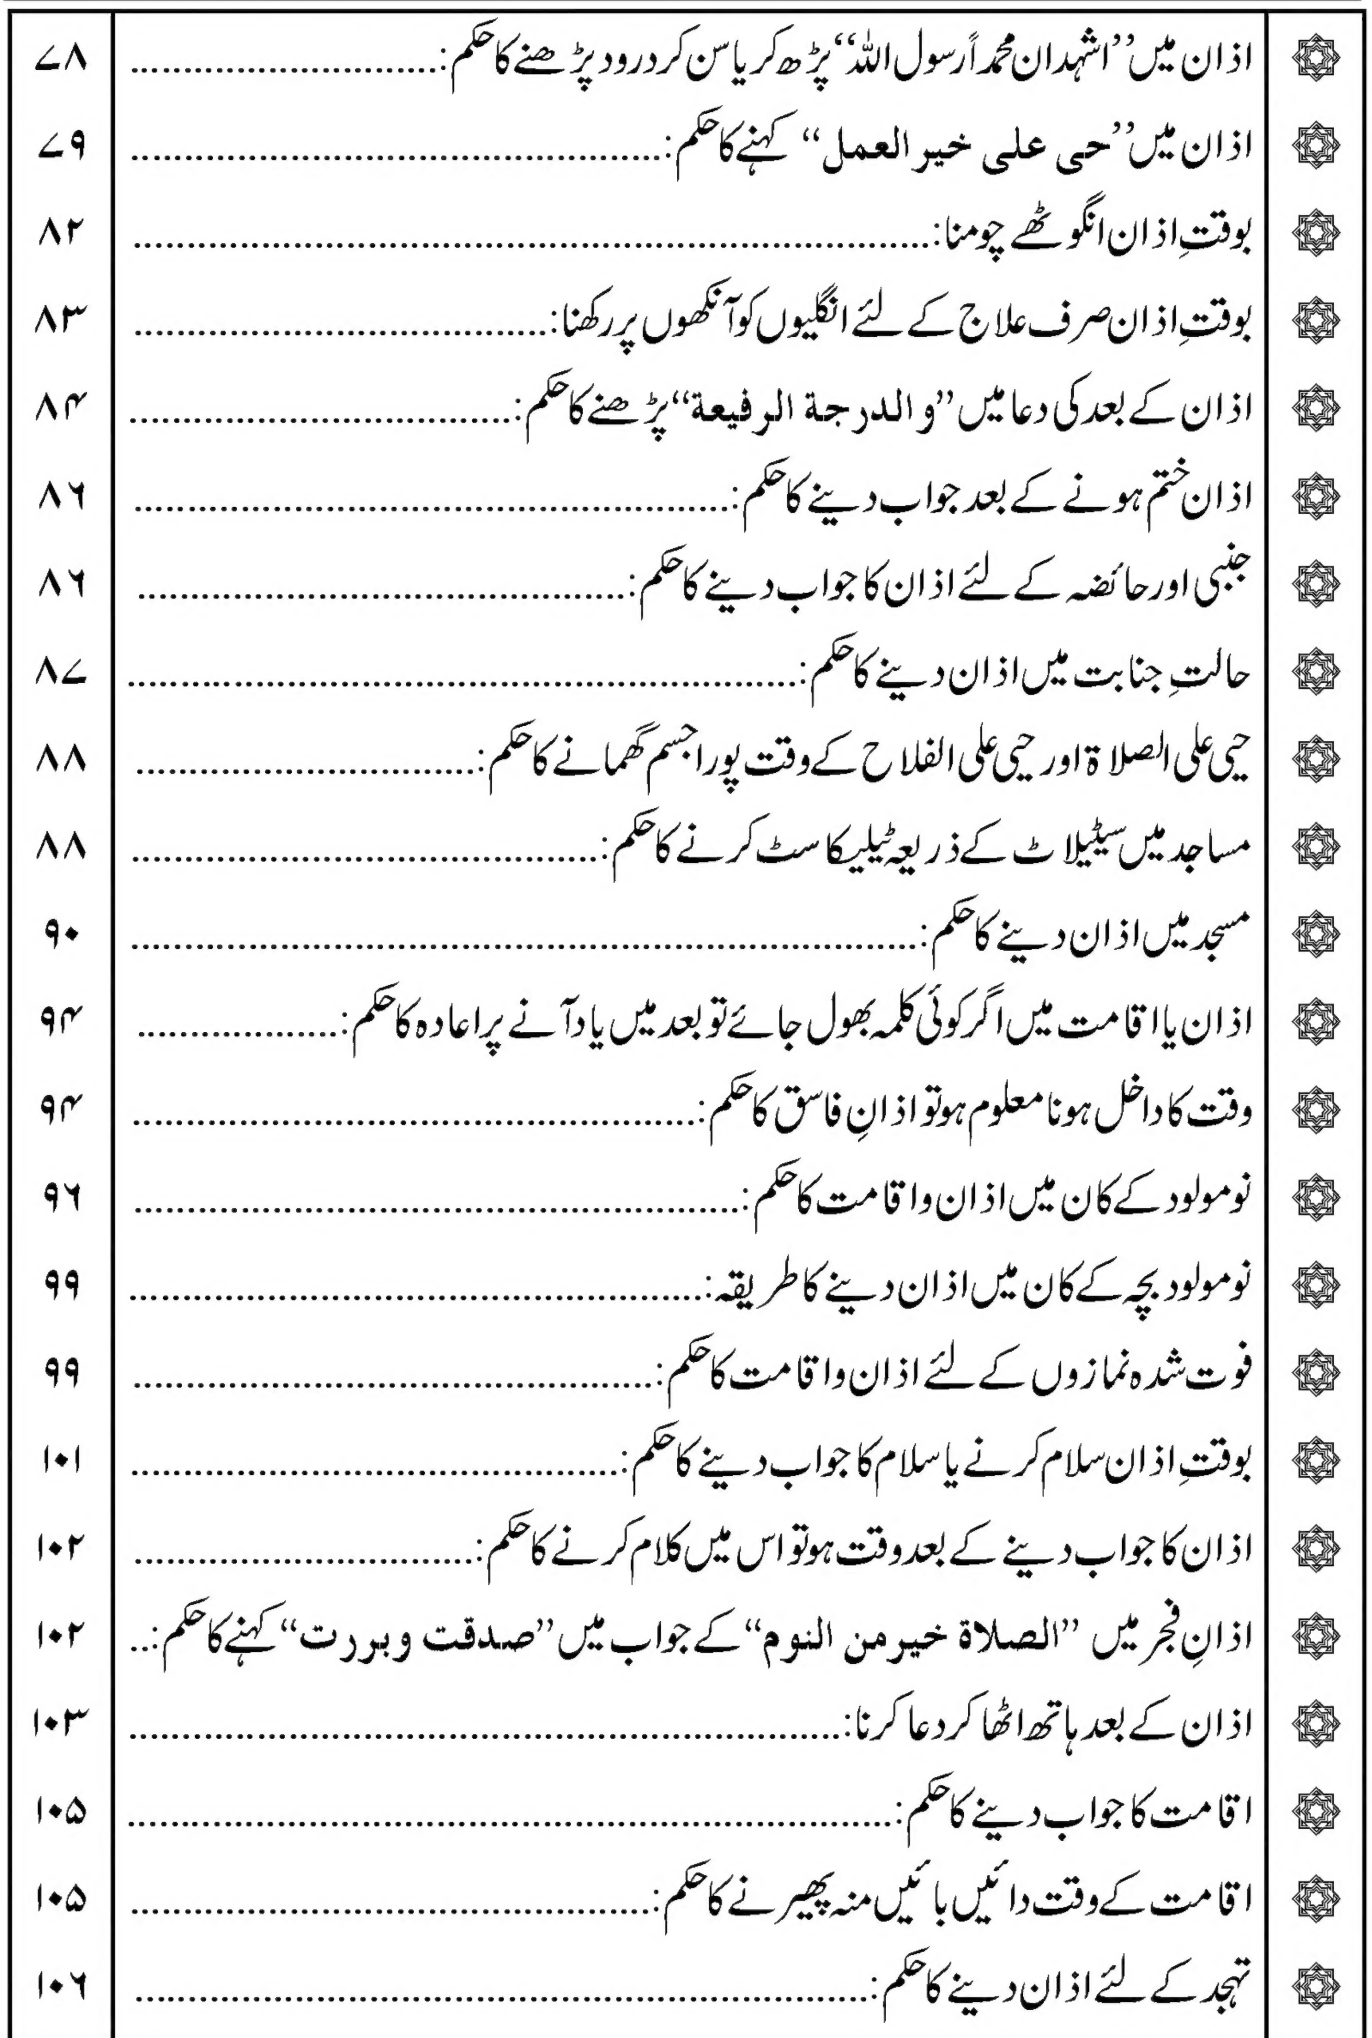 اذان میں ’’اشہدان محمداً رسول اللہ‘‘ پڑھ کر یا سن کر درود پڑھنے کا حکم: ۷۸
اذان میں ’’حی علی خیر العمل‘‘ کہنے کا حکم: ۷۹
بوقتِ اذان انگوٹھے چومنا: ۸۲
بوقتِ اذان صرف علاج کے لئے انگلیوں کو آنکھوں پر رکھنا: ۸۳
اذان کے بعد کی دعا میں ’’والدرجة الرفيعة‘‘ پڑھنے کا حکم: ۸۴
اذان ختم ہونے کے بعد جواب دینے کا حکم: ۸۶
جنبی اور حائضہ کے لئے اذان کا جواب دینے کا حکم: ۸۶
حالتِ جنابت میں اذان دینے کا حکم: ۸۷
حیی علی الصلاۃ اور حیی علی الفلاح کے وقت پورا جسم گھمانے کا حکم: ۸۸
مساجد میں سیٹیلاٹ کے ذریعہ ٹیلیکاسٹ کرنے کا حکم: ۸۸
مسجد میں اذان دینے کا حکم: ۹۰
اذان یا اقامت میں اگر کوئی کلمہ بھول جائے تو بعد میں یاد آنے پر اعادہ کا حکم: ۹۴
وقت کا داخل ہونا معلوم ہو تو اذانِ فاسق کا حکم: ۹۴
نومولود کے کان میں اذان واقامت کا حکم: ۹۶
نومولود بچہ کے کان میں اذان دینے کا طریقہ: ۹۹
فوت شدہ نمازوں کے لئے اذان واقامت کا حکم: ۹۹
بوقتِ اذان سلام کرنے یا سلام کا جواب دینے کا حکم: ۱۰۱
اذان کا جواب دینے کے بعد وقت ہو تو اس میں کلام کرنے کا حکم: ۱۰۲
اذانِ فجر میں ’’الصلاة خیر من النوم‘‘ کے جواب میں ’’صدقت وبررت‘‘ کہنے کا حکم: ۱۰۲
اذان کے بعد ہاتھ اٹھا کر دعا کرنا: ۱۰۳
اقامت کا جواب دینے کا حکم: ۱۰۵
اقامت کے وقت دائیں بائیں منہ پھیرنے کا حکم: ۱۰۵
تہجد کے لئے اذان دینے کا حکم: ۱۰۶